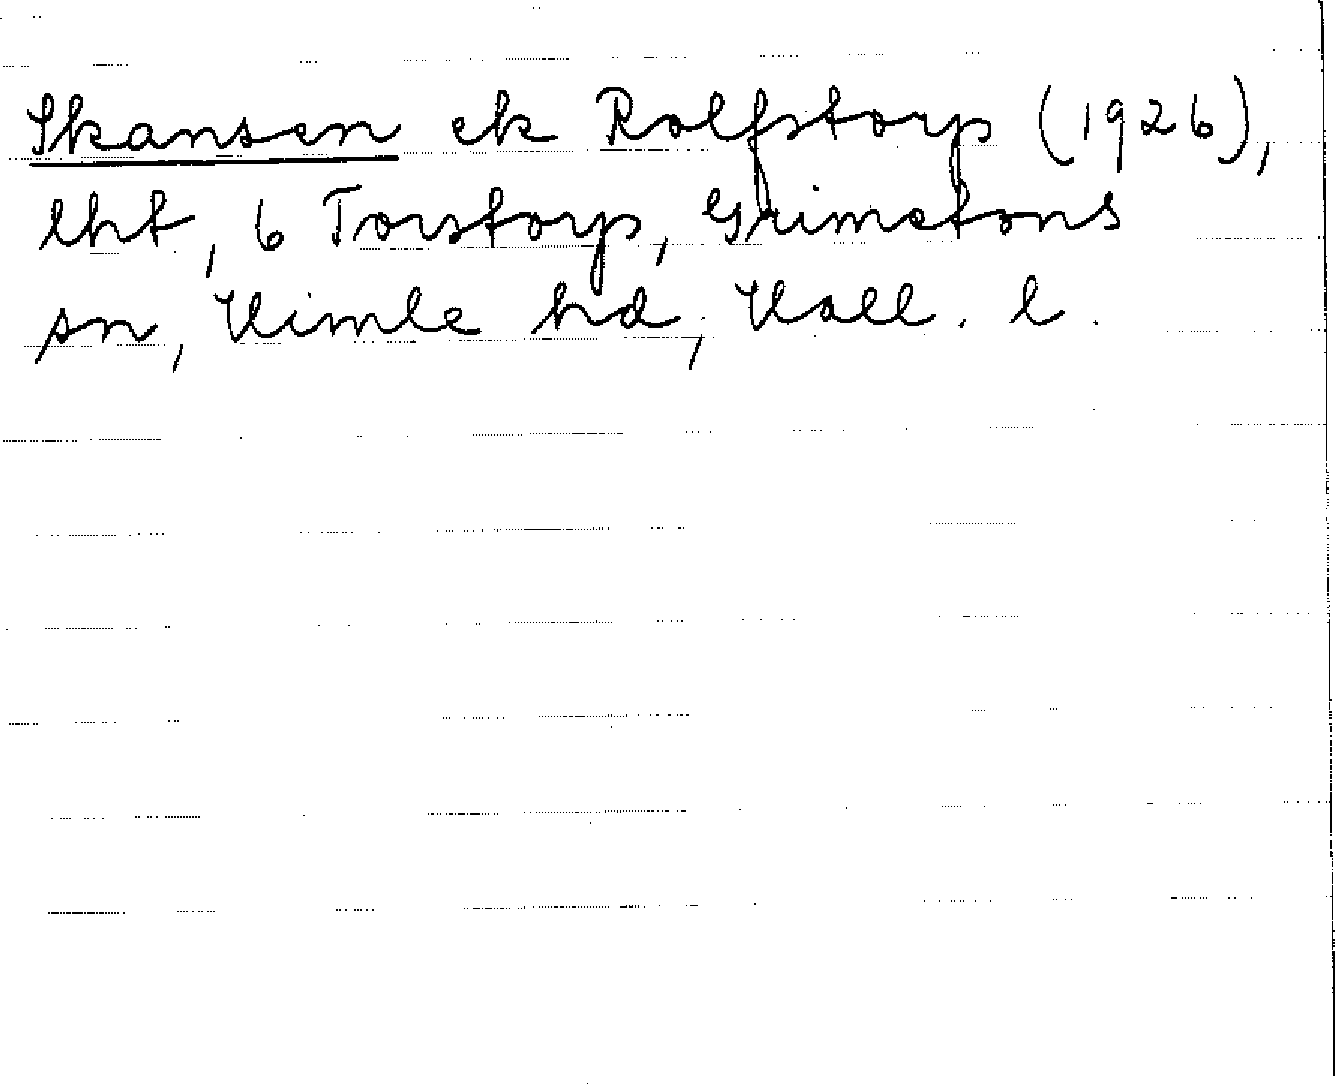 Skansen ek Rolfstorp (1926),
lht, 6 Torstorp, Grimetons
sn, Himle hd, Hall. l.